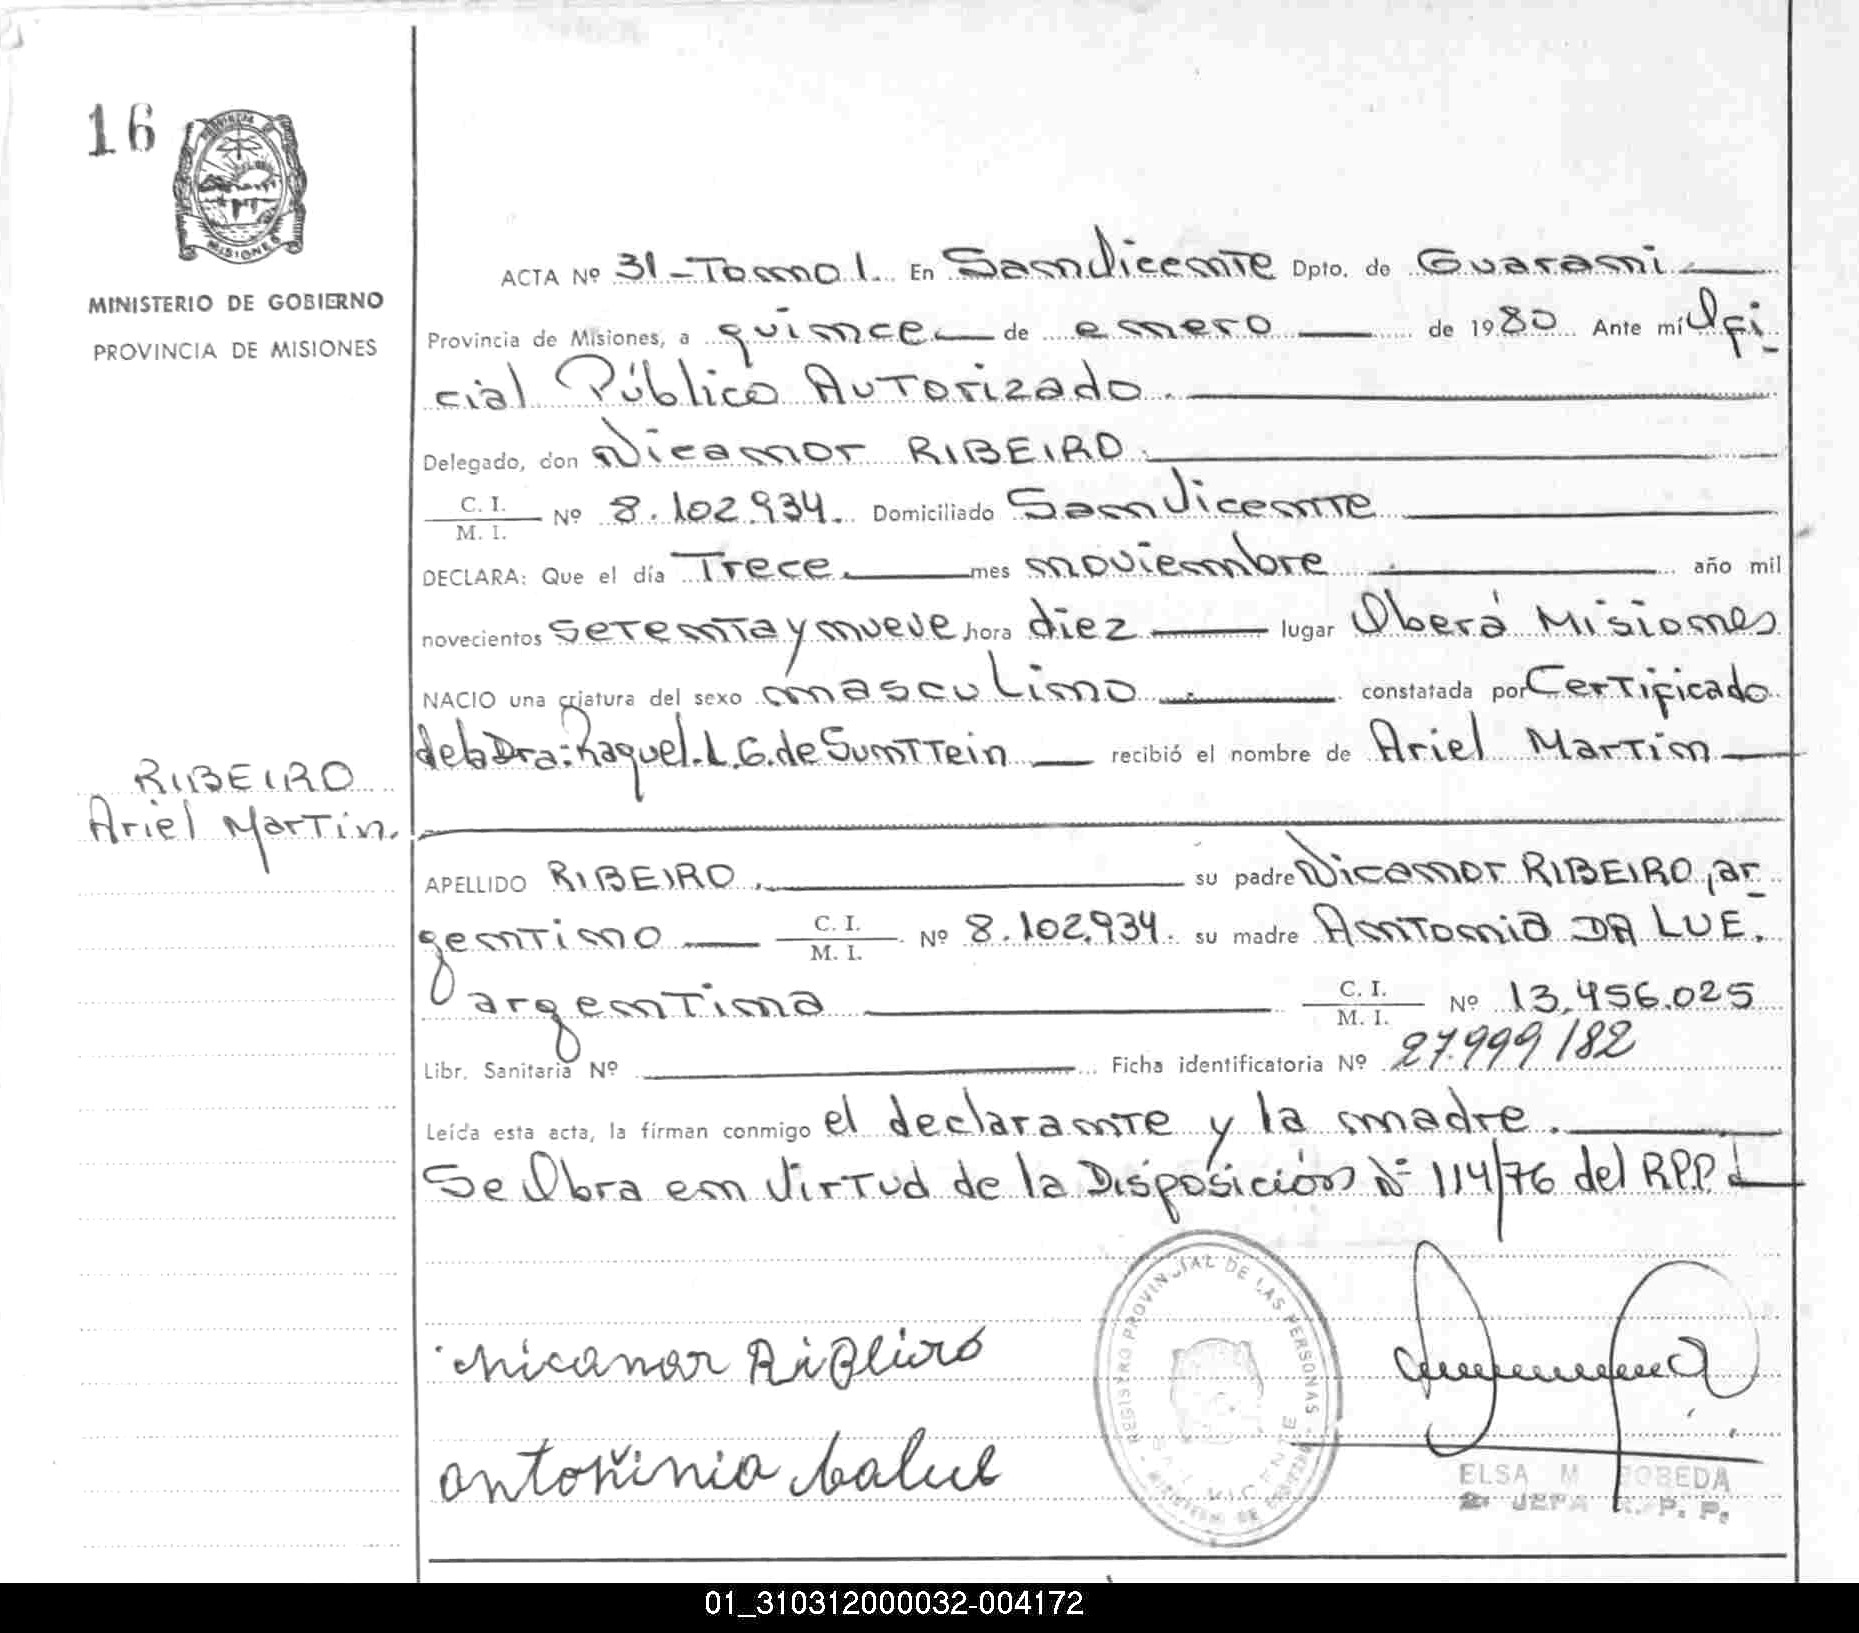 16
MINISTERIO DE GOBIERNO
PROVINCIA DE MISIONES
ACTA Nº 31-Tomo 1. En San Vicente Dpto. de Guarani
Provincia de Misiones, a quince de enero de 1980 Ante mí Ofi-
cial Público Autorizado.
Delegado, don Nicanor RIBEIRO.
C. I.
M. I. Nº 8.102.934. Domiciliado San Vicente
DECLARA: Que el día Trece mes noviembre año mil
novecientos setenta y nueve, hora diez lugar Oberá Misiones
NACIO una criatura del sexo masculino constatada por Certificado
de la Dra: Raquel.L.G.de Sunttein recibió el nombre de Ariel Martin
RIBEIRO
Ariel Martin.
APELLIDO RIBEIRO. su padre Nicanor RIBEIRO, ar-
gentino C. I.
M. I. Nº 8.102.934. su madre Antonia DA LUE.
argentina C. I.
M. I. Nº 13.456.025
Libr. Sanitaria Nº Ficha identificatoria Nº 27.999182
Leída esta acta, la firman conmigo el declarante y la madre.
Se Obra en Virtud de la Disposición Nº 114/76 del RPP.
REGISTRO PROVINCIAL DE LAS PERSONAS
Nicanor Ribeiro
SAN VICENTE
ELSA M BOBEDA
2º JEFA R. P. P.
01_310312000032-004172